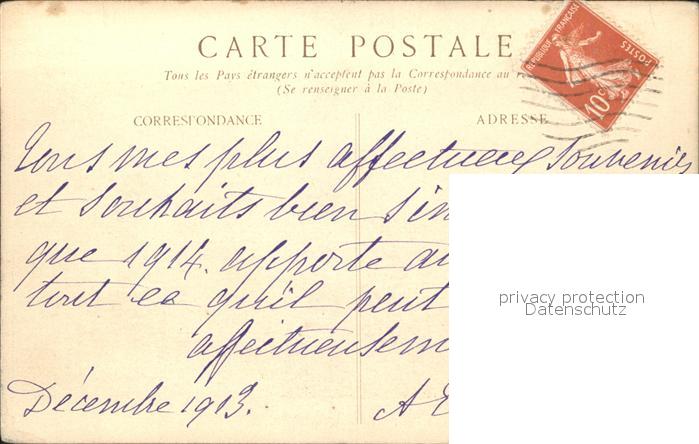 CARTE POSTALE
Tous les Pays étrangers n'acceptent pas la Correspondance au
(Se renseigner à la Poste)
REPUBLIQUE FRANÇAISE
POSTES
10c
CORRESPONDANCE
ADRESSE
Tous mes plus affectueux souvenirs
et souhaits bien sin
que 1914. apporte
tout ce qu'il peut
affectueusem
Décembre 1913.
privacy protection
Datenschutz